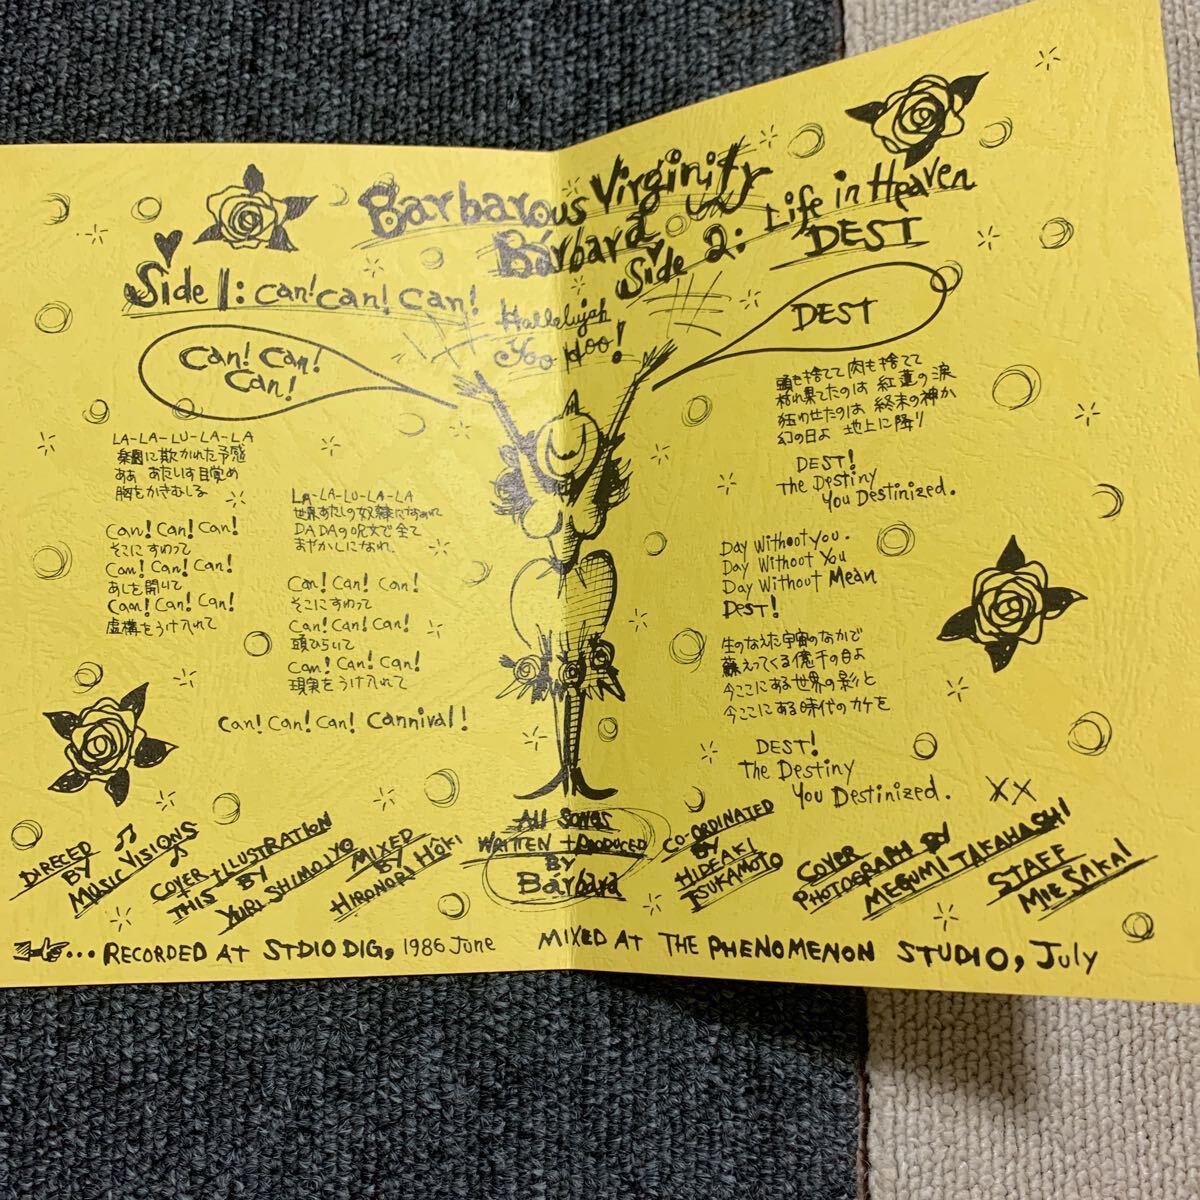 Barbarous Virginity
Bárbara
Side 1: Can! Can! Can!
Side 2: Life in Heaven
DEST
Hallelujah
Yoo Hoo!
Can! Can!
Can!
DEST
LA-LA-LU-LA-LA
楽園に欺かれた予感
ああ あたいは目覚め
胸をかきむしる
Can! Can! Can!
そこにすわって
Can! Can! Can!
あしを開いて
Can! Can! Can!
虚構をうけ入れて
LA-LA-LU-LA-LA
世界あたしの奴隷になあれ
DADAの呪文で全て
まやかしになれ
Can! Can! Can!
そこにすわって
Can! Can! Can!
頭ひらいて
Can! Can! Can!
現実をうけ入れて
Can! Can! Can! Cannival!
頭も捨てて 肉も捨てて
枯れ果てたのは 紅蓮の涙
狂わせたのは 終末の神か
幻の日よ 地上に降り
DEST!
The Destiny
You Destinized.
Day Without you.
Day Without You
Day Without Mean
Dest!
生のなえた宇宙のなかで
蘇えってくる億千の日よ
今ここにある世界の影と
今ここにある時代のカケを
DEST!
The Destiny
You Destinized.
XX
DIRECED
BY
MUSIC VISIONS
COVER + ILLUSTRATION
THIS BY
YURI SHIMOIYO
MIXED
BY
HIRONORI HÔKI
All Songs
WRITTEN + PRODUCED
BY
Bárbara
CO-ORDINATED
BY
HIDEAKI
TSUKAMOTO
COVER
PHOTOGRAPH BY
MEGUMI TAKAHASHI
STAFF
MIE SAKAI
... RECORDED AT STDIO DIG, 1986 June MIXED AT THE PHENOMENON STUDIO, July